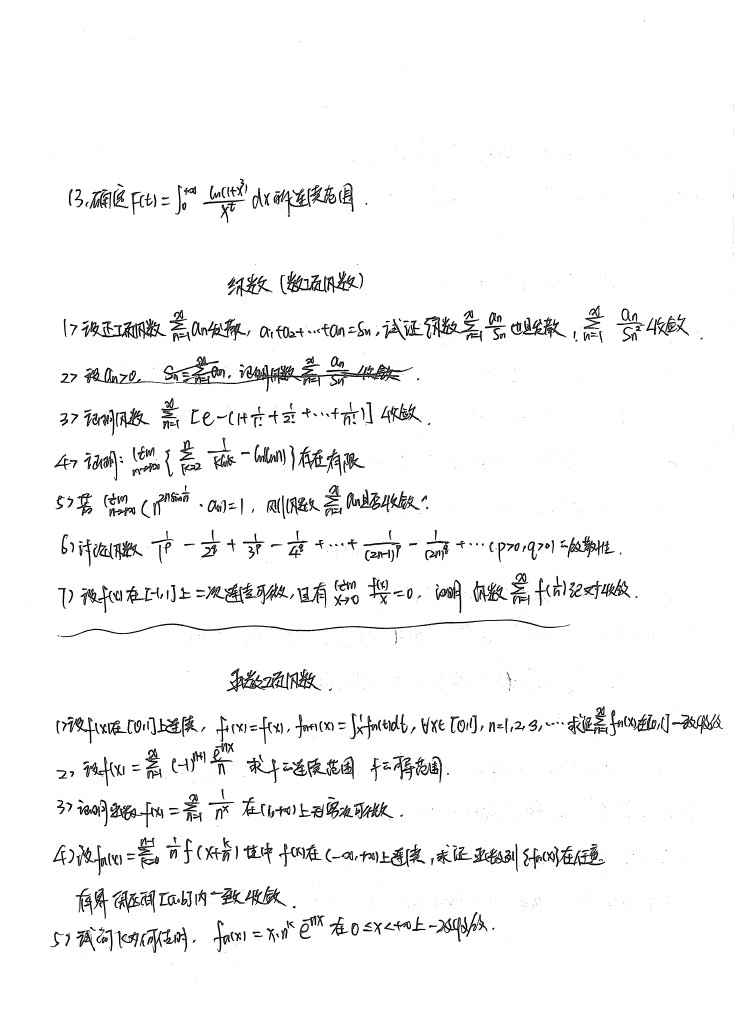 13. 确定 F(t) = ∫₀^{+∞} ln(1+x³)/x^t dx 的连续范围.
级数 (数项级数)
1> 设正项级数 ∑_{n=1}^∞ an 发散, a₁+a₂+…+an=Sn, 试证 级数 ∑_{n=1}^∞ an/Sn 也且发散, ∑_{n=1}^∞ an/Sn² 收敛
2> 设 an>0, Sn=∑_{n=1}^∞ an, 证明级数 ∑_{n=1}^∞ an/Sn² 收敛.
3> 证明级数 ∑_{n=1}^∞ [e-(1+1/1!+1/2!+…+1/n!)] 收敛.
4> 证明: lim_{n→+∞} { ∑_{k=2}^n 1/(k ln k) - ln(ln n) } 存在有限
5> 若 lim_{n→+∞} (n^{2n sin 1/n} · an)=1, 则级数 ∑_{n=1}^∞ an 是否收敛?
6> 讨论级数 1/1^p - 1/2^q + 1/3^p - 1/4^q + … + 1/(2n-1)^p - 1/(2n)^q + … (p>0, q>0) 之敛散性.
7) 设 f(x) 在 [-1,1] 上二次连续可微, 且有 lim_{x→0} f(x)/x = 0, 证明 级数 ∑_{n=1}^∞ f(1/n) 绝对收敛.
函数项级数.
1> 设 f(x) 在 [0,1] 上连续, f₁(x)=f(x), f_{n+1}(x)=∫_x^1 fn(t)dt, ∀x∈[0,1], n=1,2,3,… 求证 ∑_{n=1}^∞ fn(x) 在[0,1]一致收敛
2> 设 f(x) = ∑_{n=1}^∞ (-1)^{n+1} e^{-nx}/n 求 f 之连续范围 f 之可导范围.
3> 证明函数 f(x) = ∑_{n=1}^∞ 1/n^x 在 (1,+∞) 上无穷次可微.
4> 设 fn(x) = ∑_{k=0}^{n-1} 1/n f(x+k/n) 其中 f(x) 在 (-∞,+∞) 上连续, 求证 函数列 {fn(x)} 在任意
有界闭区间 [a,b] 内一致收敛.
5> 试问 k 为何值时, fn(x) = x·n^k e^{-nx} 在 0≤x<+∞ 上一致收敛.